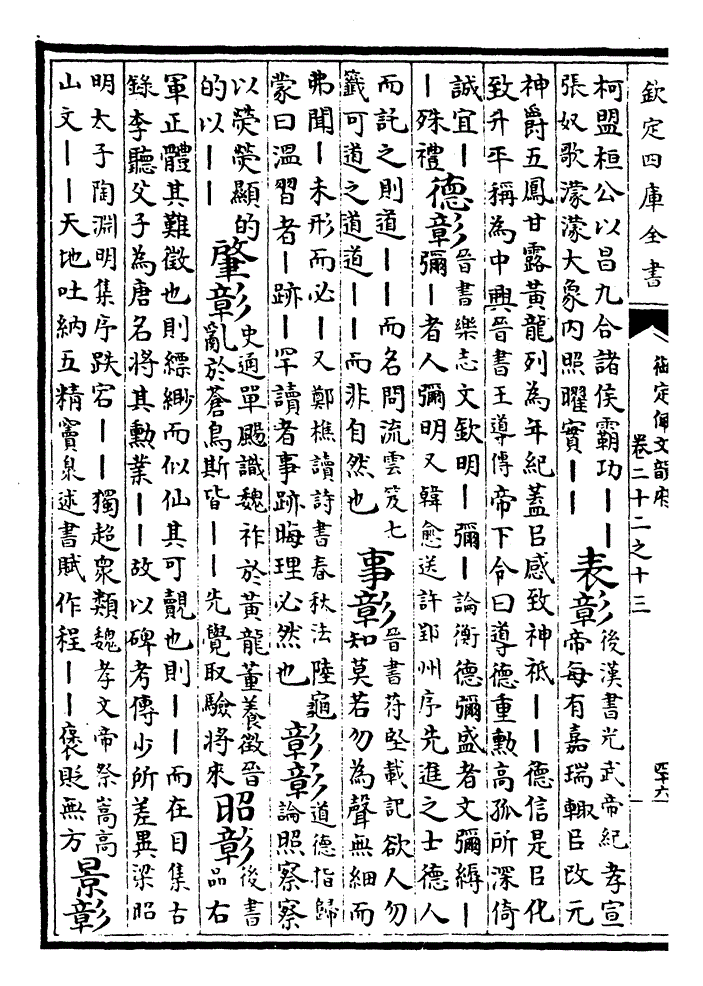 欽定四庫全書
御定佩文韻府
卷二十二之十三
四十六
柯盟桓公以昌九合諸侯霸功丨丨
張奴歌濛濛大象内照曜實丨丨
表彰
後漢書光武帝紀孝宣
帝每有嘉瑞輙㠯改元
神爵五鳳甘露黃龍列為年紀蓋㠯感致神祗丨丨德信是㠯化
致升平稱為中興晉書王導傳帝下令曰導德重勲高孤所深倚
誠宜丨
丨殊禮
德彰
晉書樂志文欽明丨彌丨論衡德彌盛者文彌縟丨
彌丨者人彌明又韓愈送許郢州序先進之士德人
而託之則道丨丨而名問流雲笈七
籤可道之道道丨丨而非自然也
事彰
晉書苻堅載記欲人勿
知莫若勿為聲無細而
弗聞丨未形而必丨又鄭樵讀詩書春秋法陸龜
蒙曰溫習者丨跡丨罕讀者事跡晦理必然也
彰彰
道德指歸
論照察察
以熒熒顯的
的以丨丨
肇彰
史通單颺識魏祚於黃龍董養徵晉
亂於蒼鳥斯皆丨丨先覺取驗將來
昭彰
後書
品右
軍正體其難徵也則縹緲而似仙其可覿也則丨丨而在目集古
錄李聽父子為唐名將其勲業丨丨故以碑考傳少所差異梁昭
明太子陶淵明集序跌宕丨丨獨超衆類魏孝文帝祭嵩高
山文丨丨天地吐納五精竇臮述書賦作程丨丨褒貶無方
景彰